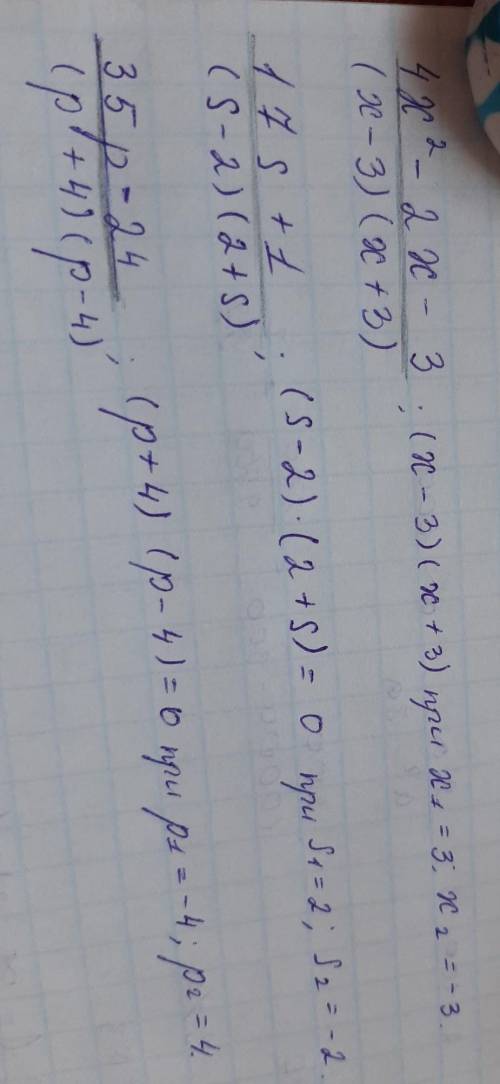 4x² - 2x - 3
(x - 3)(x + 3) ; (x - 3)(x + 3) при x₁ = 3; x₂ = -3.
17s + 1
(s - 2)(2 + s) ; (s - 2)·(2 + s) = 0 при s₁ = 2; s₂ = -2.
35p - 24
(p + 4)(p - 4) ; (p + 4)(p - 4) = 0 при p₁ = -4; p₂ = 4.